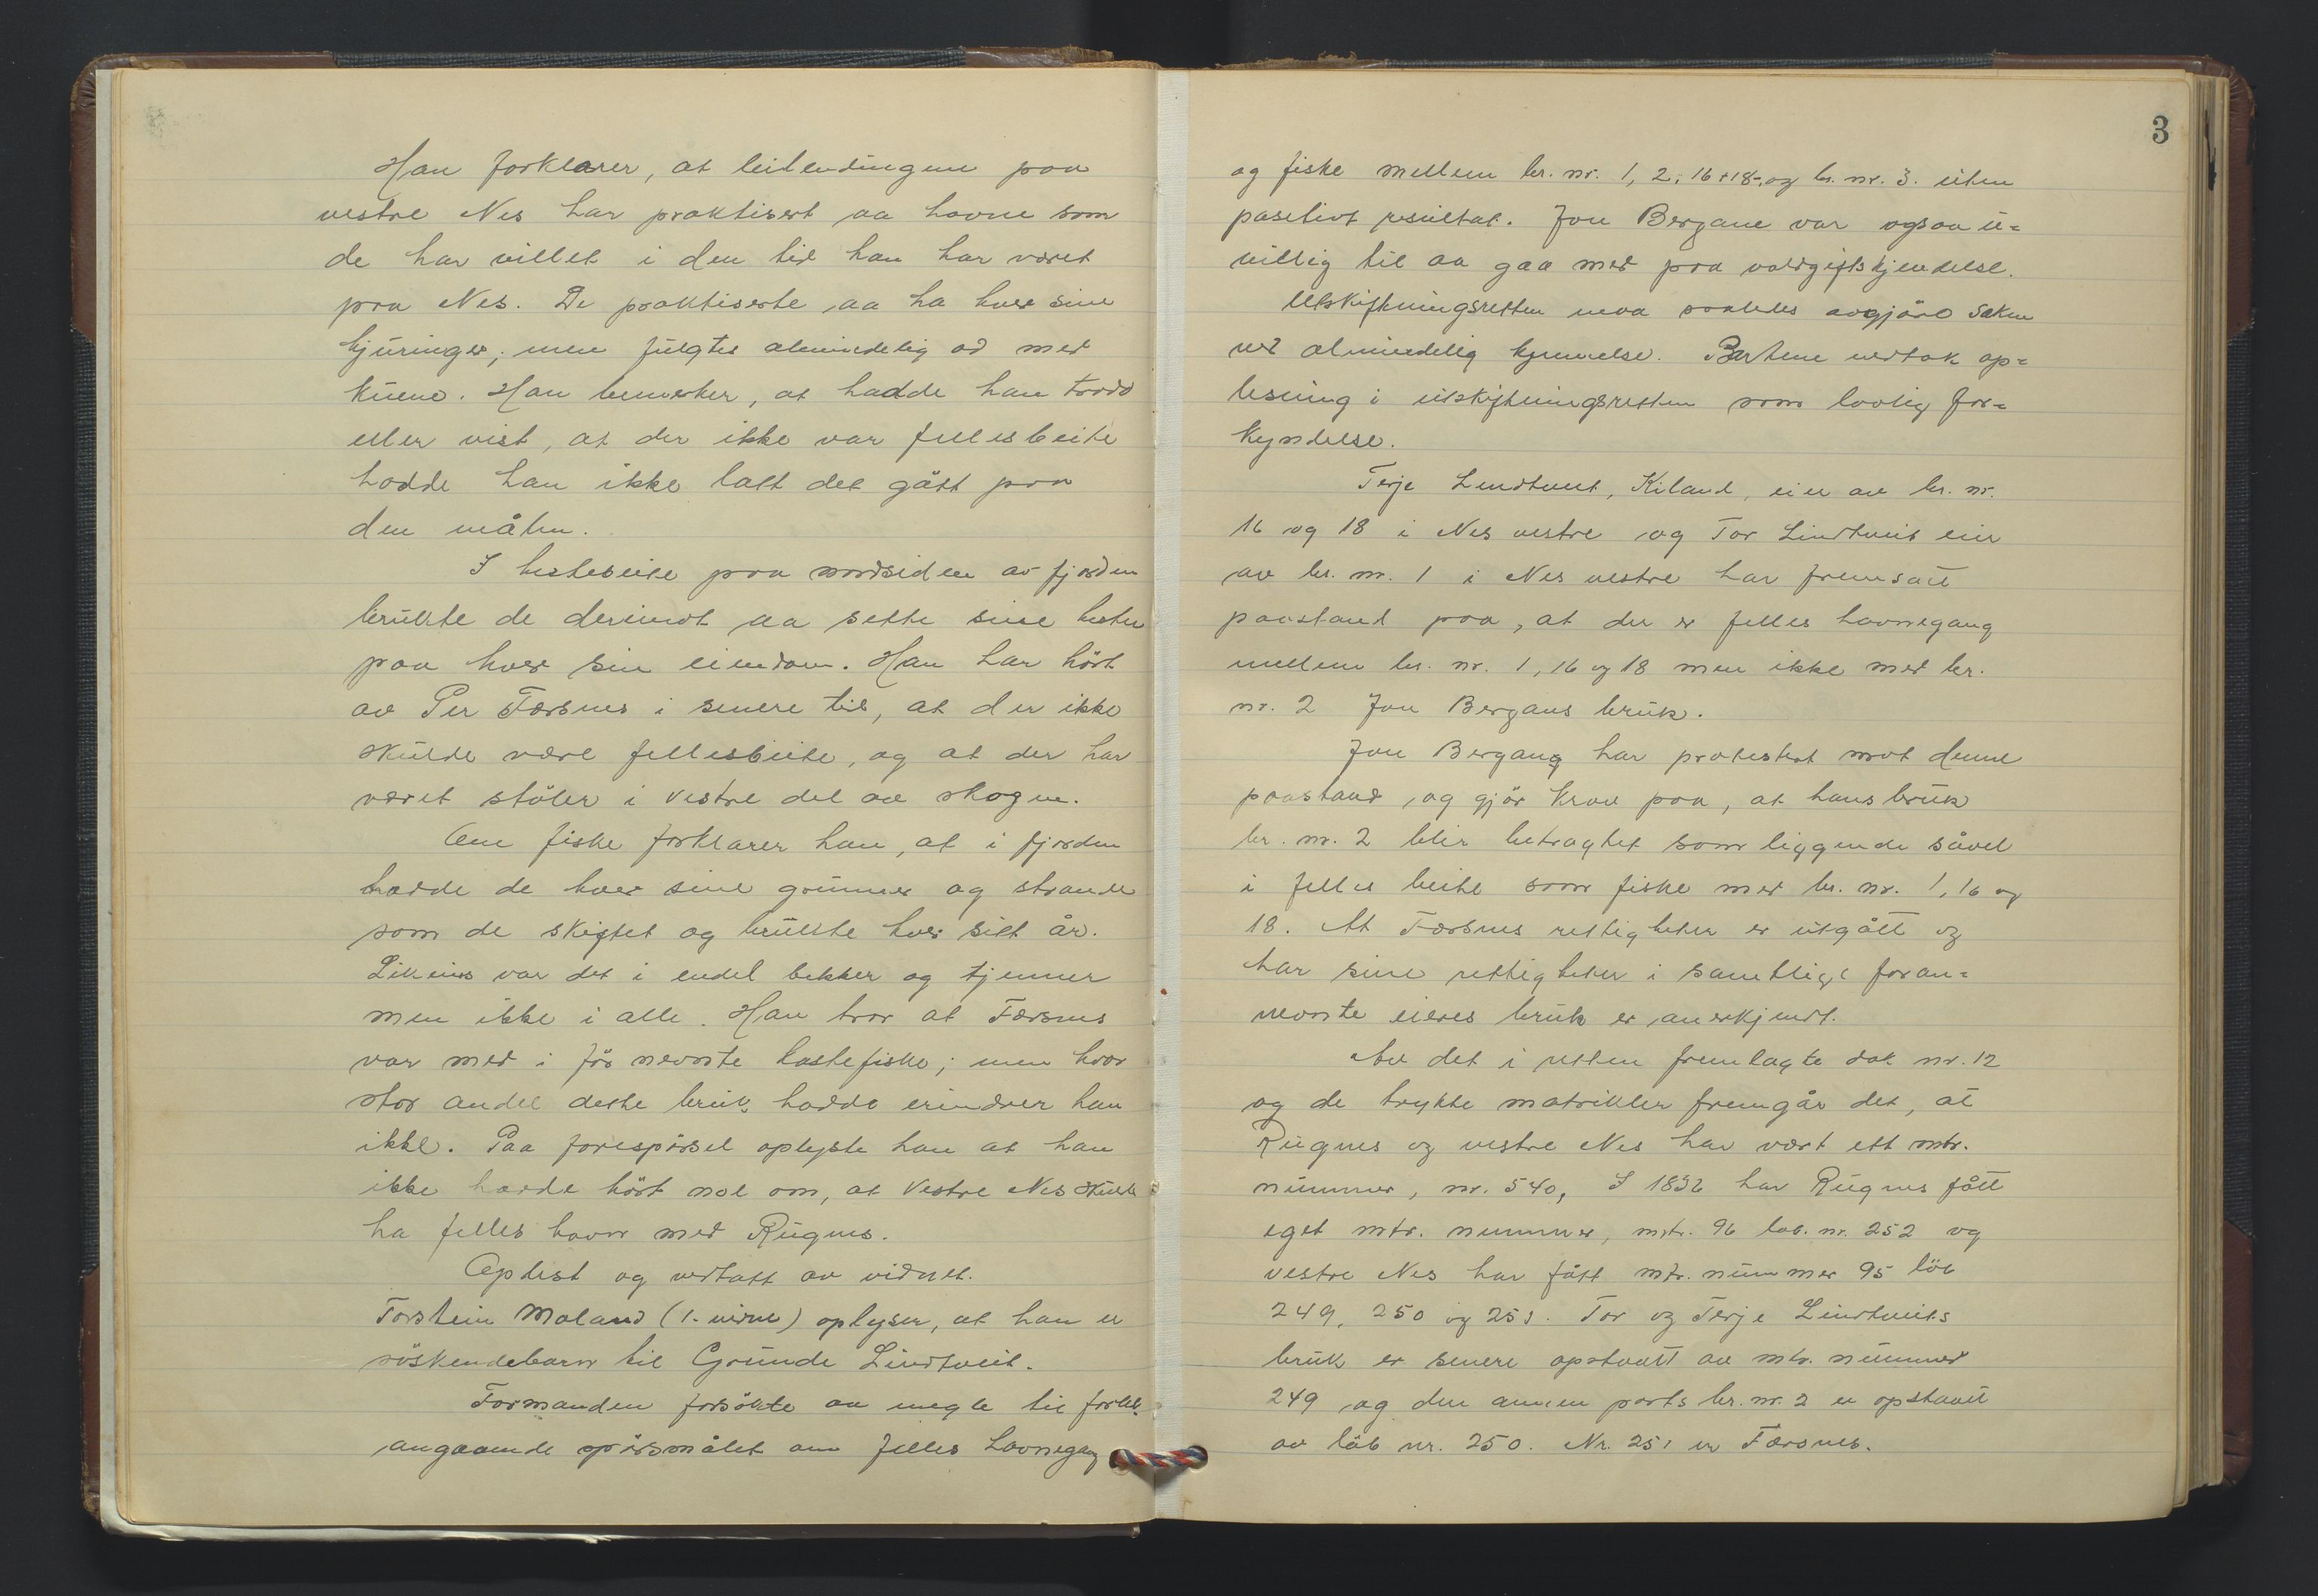 Han forklarer, at leilendingene paa
vestre Nes har praktisert aa havne som
de har villet i den tid han har været
paa Nes. De praktiserte aa ha hver sine
hjuringer; men fulgtes almindelig ad med
kuene. Han bemerker, at hadde han trodd
eller vist, at der ikke var fellesbeite
hadde han ikke latt det gått paa
den måten.
I hestebeite paa nordsiden av fjorden
brukte de derimot aa sette sine hester
paa hver sin eiendom. Han har hört
av Per Færsnes i senere tid, at der ikke
skulde være fellesbeite, og at der har
været stöler i vestre del av skogen.
Om fiske forklarer han, at i fjorden
hadde de hver sine grunner og strander
som de skiftet og brukte hver sitt år.
Likeins var det i endel bekker og tjenner
men ikke i alle. Han tror at Færsnes
var med i för nevnte kastefiske; men hvor
stor andel dette bruk hadde erindrer han
ikke. Paa forespörsel oplyste han at han
ikke hadde hört noe om, at Vestre Nes skulde
ha felles havn med Rugnes.
Oplest og vedtatt av vidnet.
Torstein Moland (1. vidne) oplyser, at han er
söskendebarn til Grunde Lindtveit.
Formanden forsökte aa megle til forlik
angaaende spörsmålet om felles havnegang
3
og fiske mellem br. nr. 1, 2, 16 + 18, og br. nr. 3. uten
positivt resultat. Jon Bergane var ogsaa u=
villig til aa gaa med paa voldgiftskjendelse.
Utskiftningsretten maa saaledes avgjöre saken
ved almindelig kjennelse. Partene vedtok op=
lesning i utskiftningsretten som lovlig for=
kyndelse.
Terje Lindtveit, Kiland, eier av br. nr.
16 og 18 i Nes vestre og Tor Lindtveit eier
av br. nr. 1 i Nes vestre har fremsatt
paastand paa, at der er felles havnegang
mellem br. nr. 1, 16 og 18 men ikke med br.
nr. 2 Jon Bergans bruk.
Jon Bergang har protestert mot denne
paastand, og gjör krav paa, at hans bruk
br. nr. 2 blir betragtet som liggende såvel
i felles beite som fiske med br. nr. 1, 16 og
18. At Færsnes rettigheter er utgått og
har sine rettigheter i samtlige foran=
nevnte eieres bruk er anerkjendt.
Av det i retten fremlagte dok nr. 12
og de trykte matrikler fremgår det, at
Rugnes og vestre Nes har vært ett mtr.
nummer, nr. 540, I 1832 har Rugnes fått
eget mtr. nummer, mtr. 96 löb. nr. 252 og
vestre Nes har fått mtr. nummer 95 löb
249, 250 og 251. Tor og Terje Lindtveits
bruk er senere opstaatt av mtr. nummer
249 og den annen parts br. nr. 2 er opstaatt
av löb nr. 250. Nr. 251 er Færsnes.